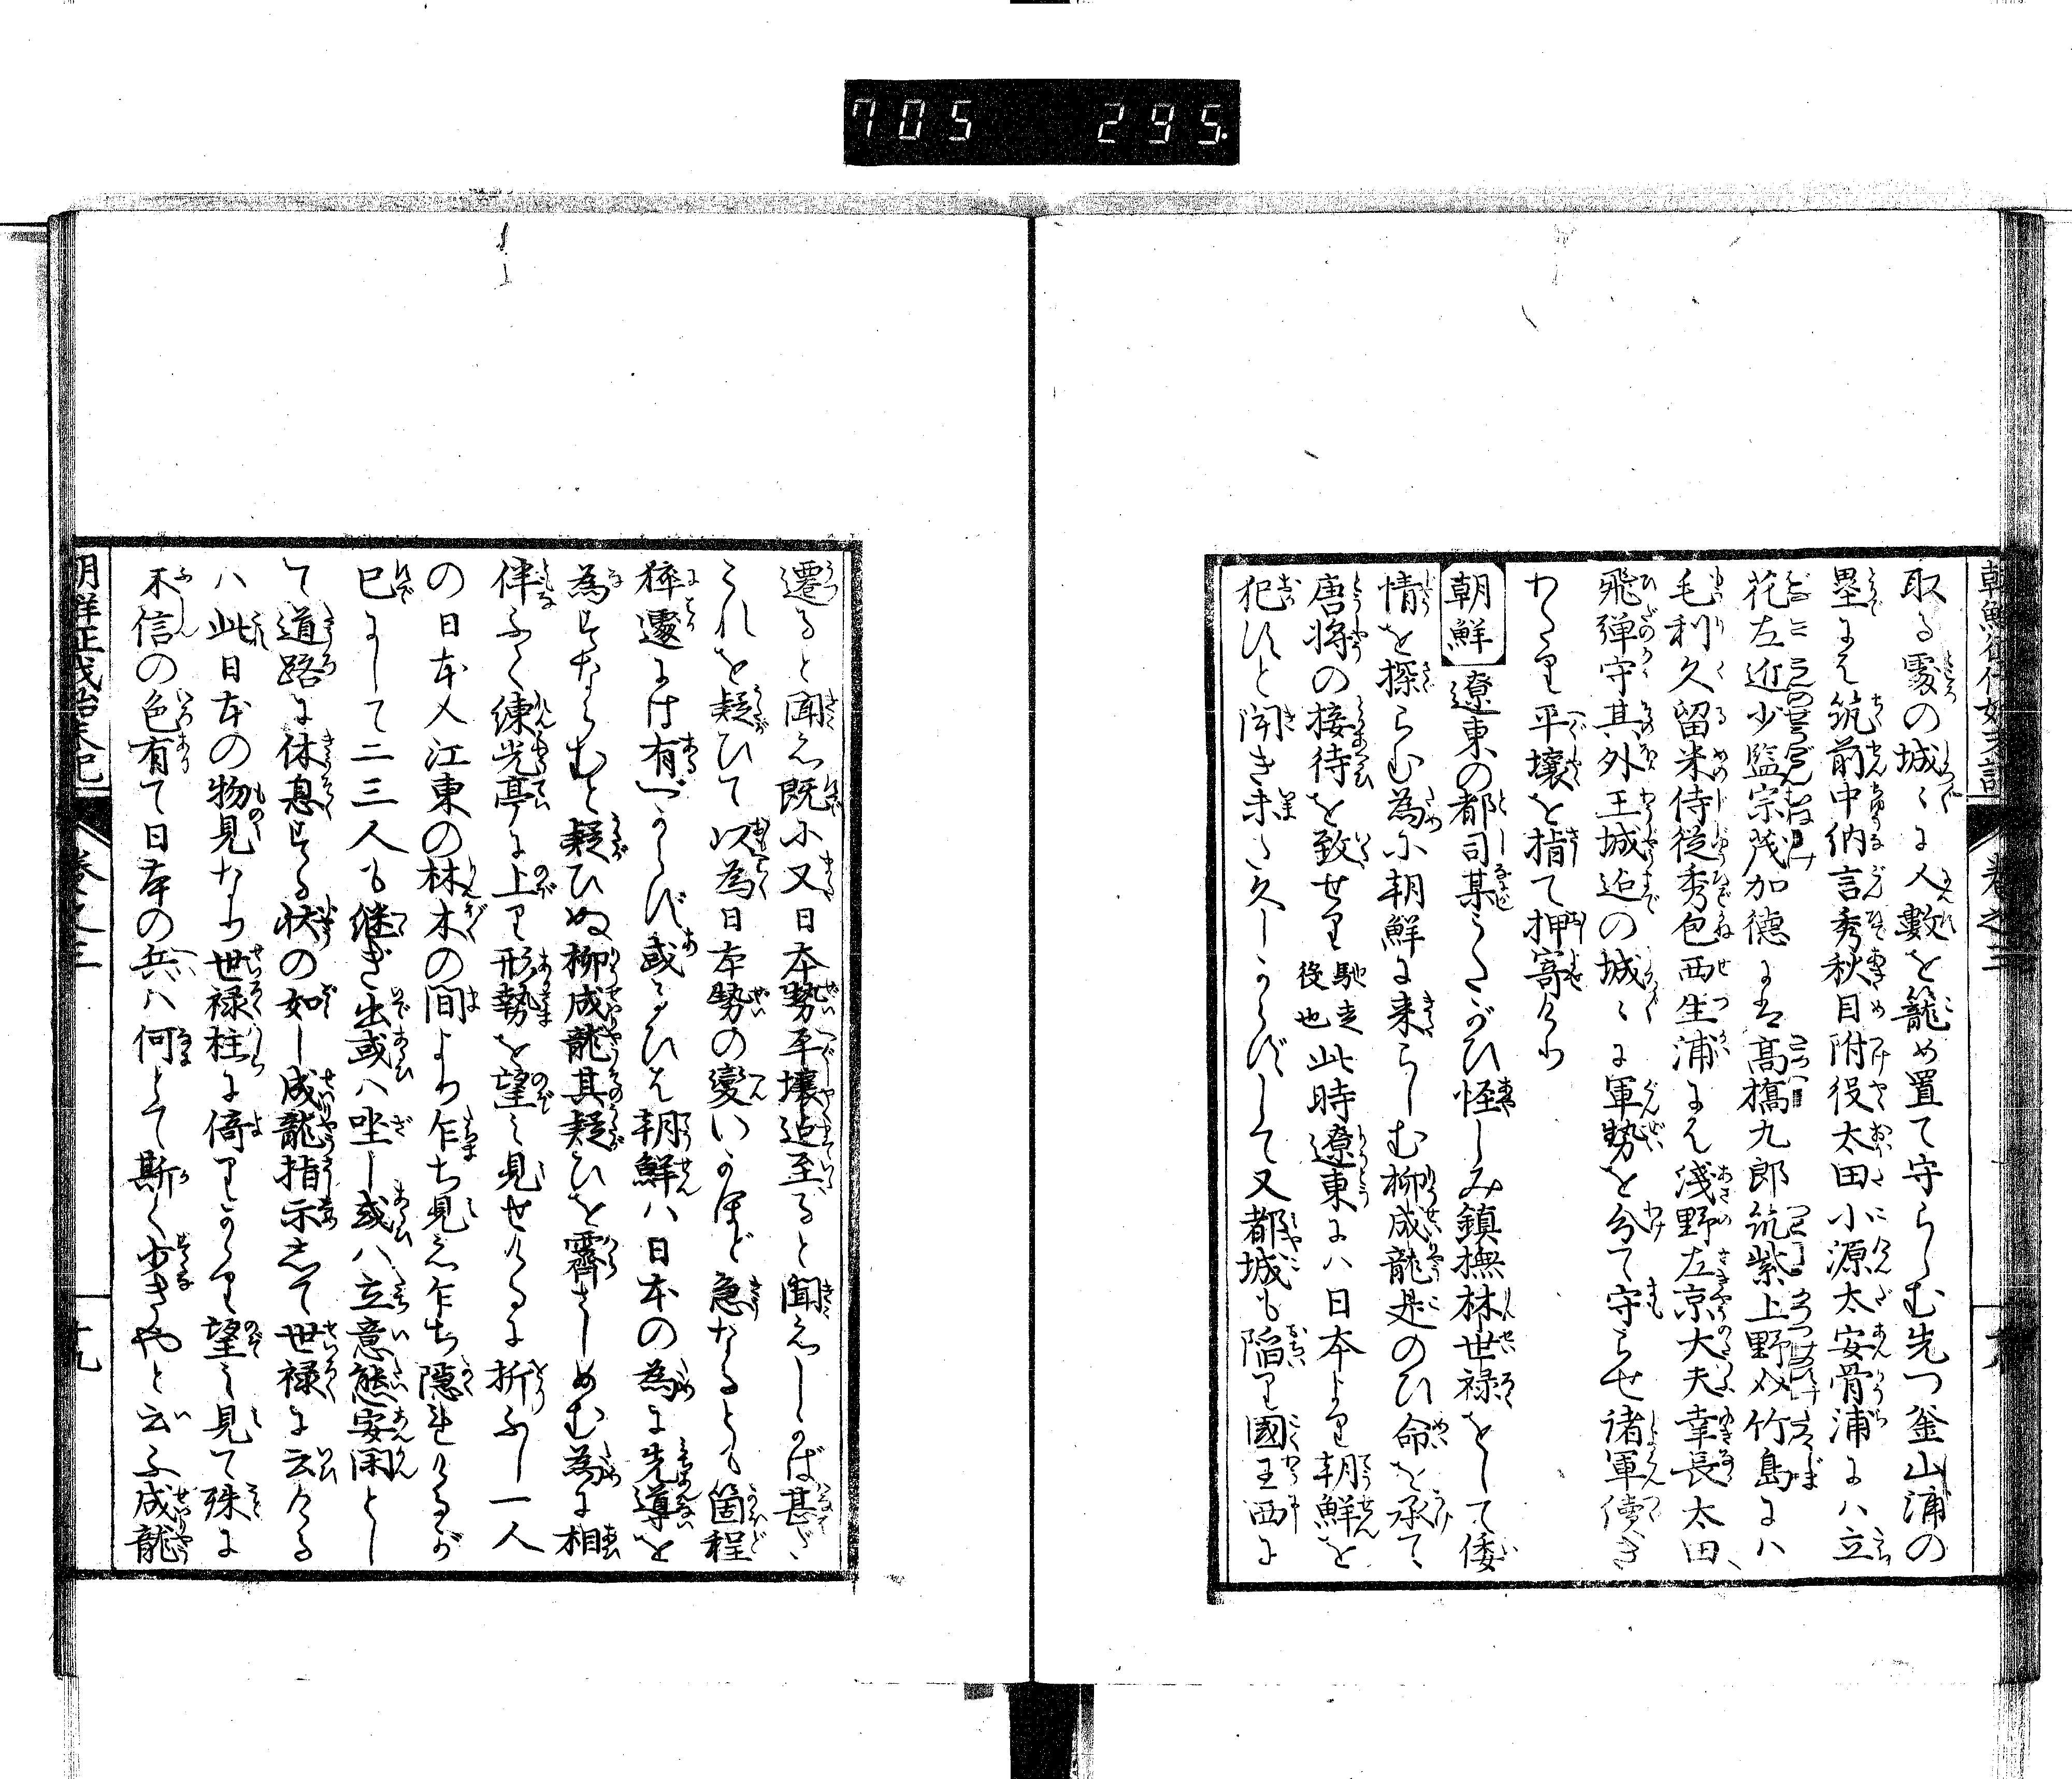 705 295.
取る處の城〻に人數を籠め置て守らしむ先つ釜山浦の
塁には筑前中納言秀秋目附役太田小源太安骨浦には立
花左近少監宗茂加德には髙橋九郎筑紫上野介竹島には
毛利久留米侍従秀包西生浦には淺野左京大夫幸長太田
飛弾守其外王城迠の城〻に軍勢を分て守らせ諸軍續き
わたり平壤を指て押寄けり
朝鮮 遼東の都司某うたがひ怪しみ鎮撫林世禄をして倭
情を探らむ為に朝鮮に来らしむ柳成龍是のひ命を承て
唐将の接待を致せり 馳走役也 此時遼東には日本より朝鮮を
犯すと聞き未た久しからずして又都城も陥り國王西に
遷ると聞え既に又日本勢平壤迠至ると聞えしかば甚だ
これを疑ひて以為日本勢の變いかほど急なるとも箇程
猝遽には有べからず或るひは朝鮮は日本の為に先導を
為すならむと疑ひぬ柳成龍其疑ひを霽さしめむ為に相
伴ふて練光亭に上り形勢を望み見せけるに折ふし一人
の日本人江東の林木の間より乍ち見え乍ち隠れけるが
已にして二三人も継ぎ出或は坐し或は立意態安閑とし
て道路に休息する状の如し成龍指示して世禄に云ける
は此日本の物見なり世禄柱に倚りかゝり望み見て殊に
不信の色有て日本の兵は何とて斯く少きやと云ふ成龍
巻之三
十九